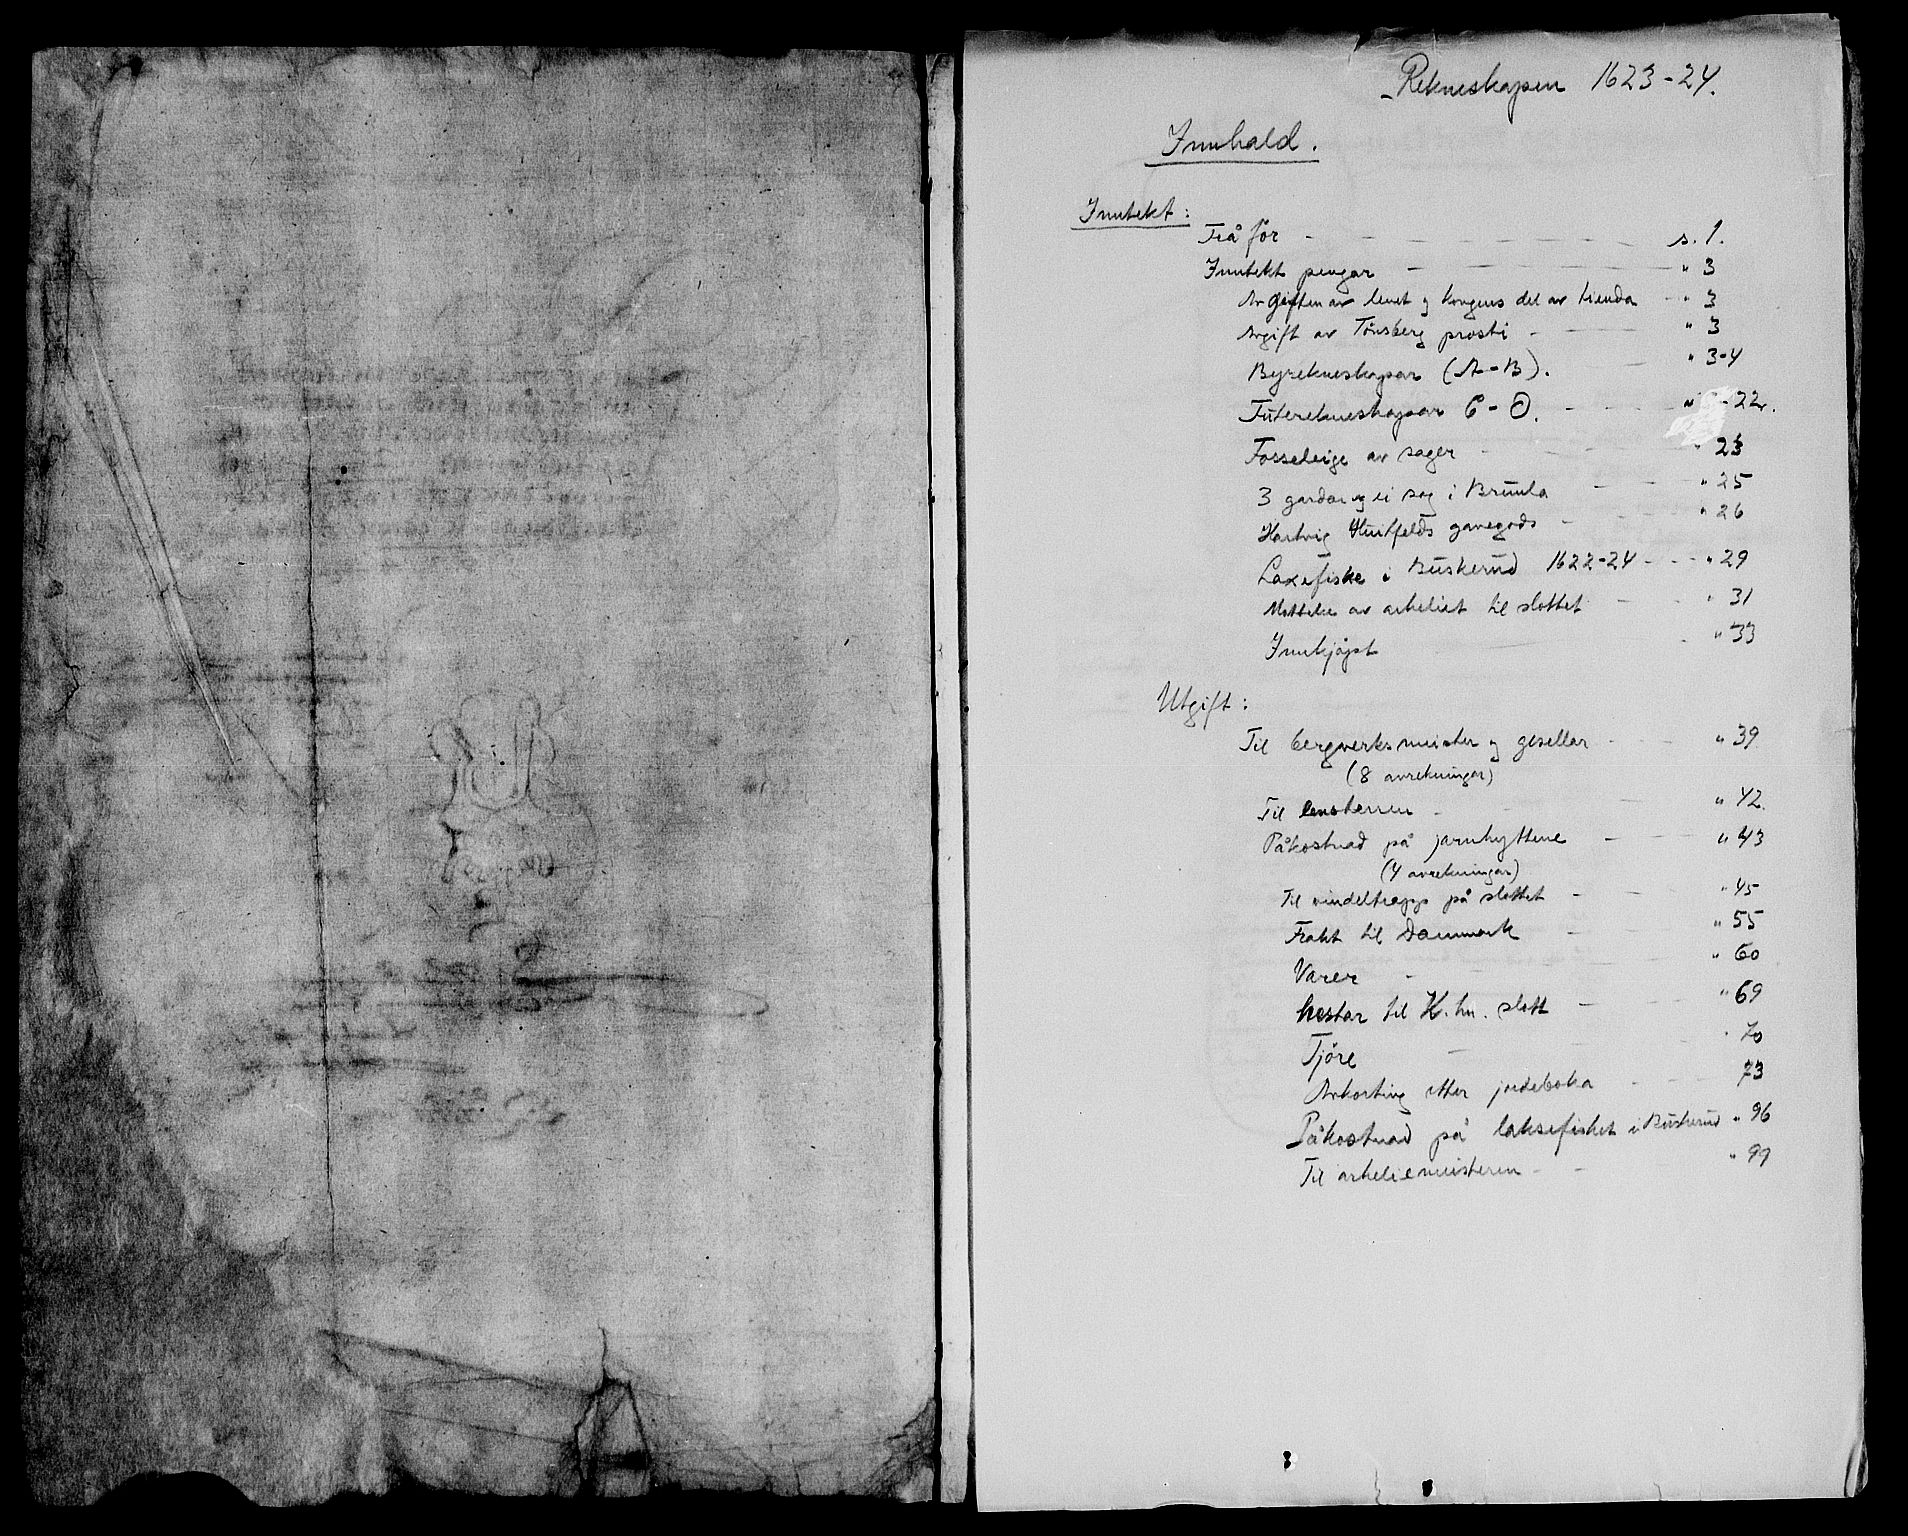 Rekneskapen 1623-24.
Innhald.
Inntekt:
Fråför - - - - - - s. 1.
Inntekt pengar - - - - - " 3
Avgiften av lenet og kongens del av tienda - " 3
Avgift av Tönsberg prosti - - - " 3
Byrekneskapar (A-B). - " 3-4
Futerekneskapar C-O. - - - " -22.
Fosseleige av sager - - - " 23
3 gardar og ei sag i Brunla - - - " 25
Hartvig Huitfelds gavegods - - " 26
Laxefiske i Buskerud 1622-24 - - - " 29
Motteke av arkeliet til slottet - - " 31
Innkjöpt - - " 33
Utgift:
Til bergverksmeister og gesellar - - - " 39
(8 avrekningar)
Til lensherren - - - " 42.
Påkostnad på jarnhyttene - - - " 43
(4 avrekningar)
Til vindeltrapp på slottet - - " 45
Frakt til Danmark - - - " 55
Varer - - - " 60
hestar til K.hn. slott - - - " 69
Tjöre - - - " 70
Avkorting etter jordeboka - - - 73
Påkostnad på laksefisket i Buskerud " 96
Til arkeliemeisteren - - " 99